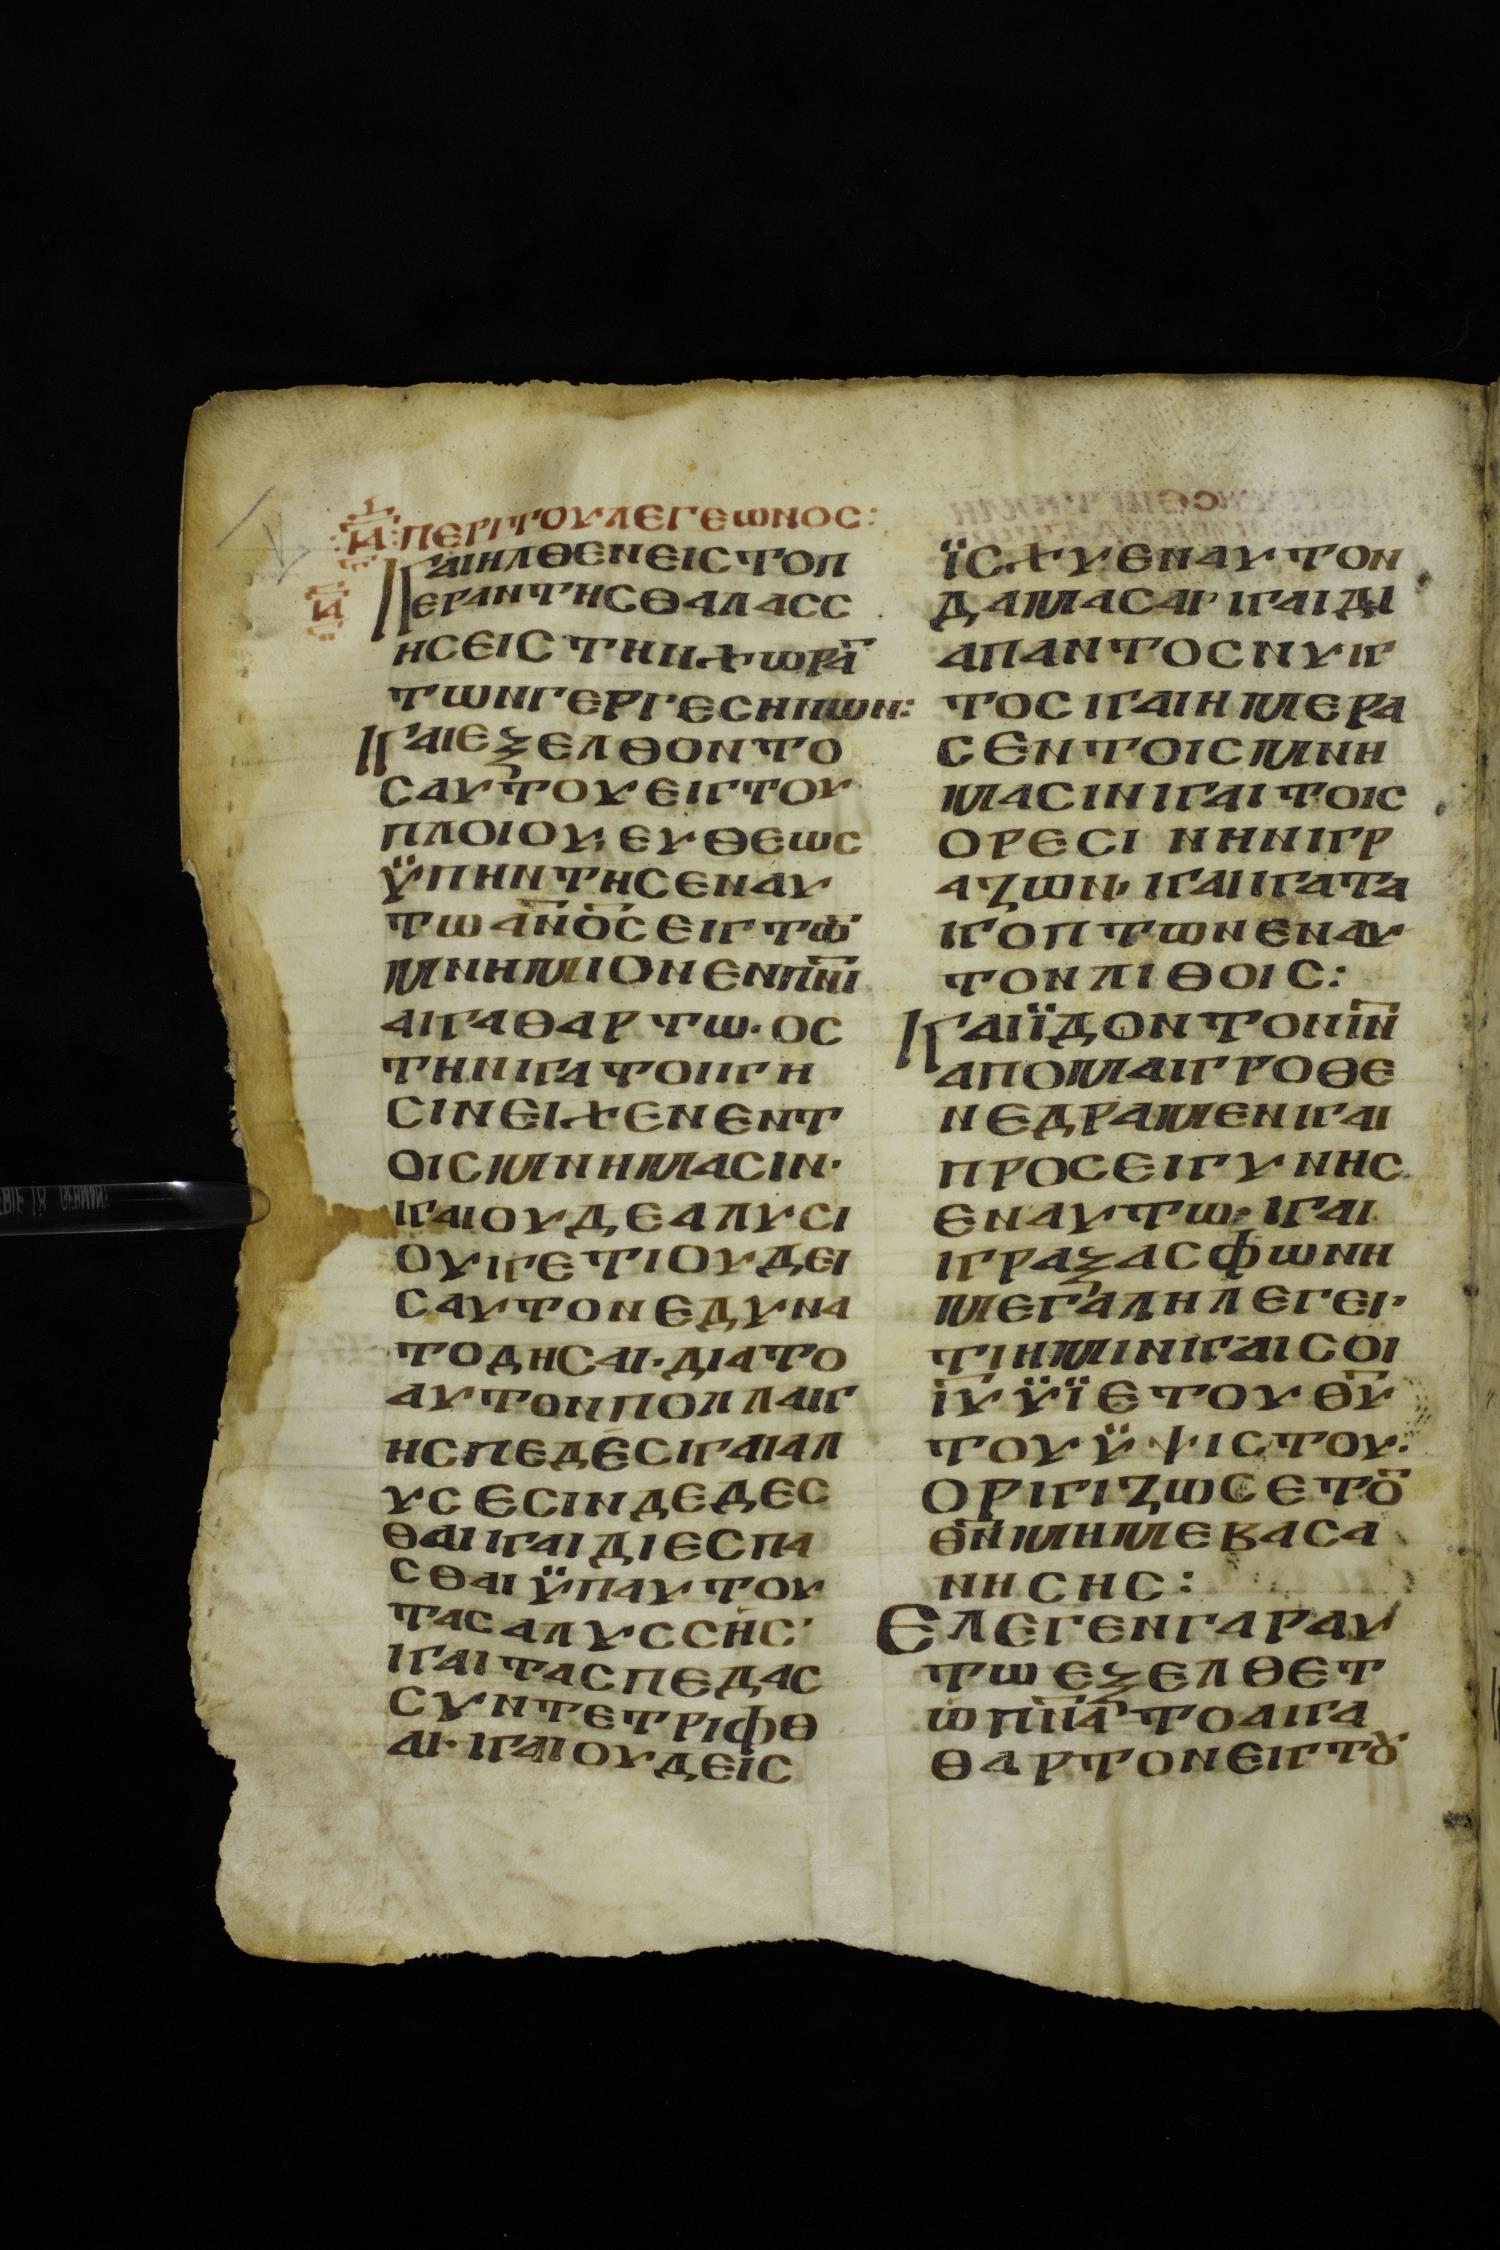 ΙΑ ΠΕΡΙΤΟΥΛΕΓΕΩΝΟΣ:
ΚΑΙΗΛΘΕΝΕΙΣΤΟΠ
ΙΑ ΕΡΑΝΤΗΣΘΑΛΑΣΣ
ΗΣΕΙΣΤΗΝΧΩΡΑ̅
ΤΩΝΓΕΡΓΕΣΗΝΩΝ:
ΚΑΙΕΞΕΛΘΟΝΤΟ
ΣΑΥΤΟΥΕΙΚΤΟΥ
ΠΛΟΙΟΥ, ΕΥΘΕΩΣ
ΫΠΗΝΤΗΣΕΝΑΥ
ΤΩΑ̅Ν̅Ο̅ΣΕΙΚΤΩ̅
ΜΝΗΜΙΟΝΕΝΠ̅Ν̅Ι̅
ΑΚΑΘΑΡΤΩ·ΟΣ
ΤΗΝΚΑΤΟΙΚΗ
ΣΙΝΕΙΧΕΝΕΝΤ
ΟΙΣΜΝΗΜΑΣΙΝ·
ΚΑΙΟΥΔΕΑΛΥΣΙ
ΟΥΚΕΤΙΟΥΔΕΙ
ΣΑΥΤΟΝΕΔΥΝΑ
ΤΟΔΗΣΑΙ·ΔΙΑΤΟ
ΑΥΤΟΝΠΟΛΛΑΚ
ΗΣΠΕΔΕΣΚΑΙΑΛ
ΥΣΕΣΙΝΔΕΔΕΣ
ΘΑΙΚΑΙΔΙΕΣΠΑ
ΣΘΑΙΫΠΑΥΤΟΥ
ΤΑΣΑΛΥΣΣΗΣ·
ΚΑΙΤΑΣΠΕΔΑΣ
ΣΥΝΤΕΤΡΙΦΘ
ΑΙ·ΚΑΙΟΥΔΕΙΣ
ΪΣΧΥΕΝΑΥΤΟΝ
ΔΑΜΑΣΑΙ·ΚΑΙΔΙ
ΑΠΑΝΤΟΣΝΥΚ
ΤΟΣΚΑΙΗΜΕΡΑ
ΣΕΝΤΟΙΣΜΝΗ
ΜΑΣΙΝΚΑΙΤΟΙΣ
ΟΡΕΣΙ ΝΗΝΚΡ
ΑΖΩΝ, ΚΑΙΚΑΤΑ
ΚΟΠΤΩΝΕΝΑΥ
ΤΟΝΛΙΘΟΙΣ:
ΚΑΙΪΔΟΝΤΟΝΙ̅Ν̅
ΑΠΟΜΑΚΡΟΘΕ
ΝΕΔΡΑΜΕΝΚΑΙ
ΠΡΟΣΕΙΚΥΝΗΣ
ΕΝΑΥΤΩ, ΚΑΙ
ΚΡΑΞΑΣΦΩΝΗ
ΜΕΓΑΛΗΛΕΓΕΙ·
ΤΙΗΜΙΝΚΑΙΣΟΙ
Ι̅Υ̅ΫΪΕΤΟΥΘ̅Υ̅
ΤΟΥΫΨΙΣΤΟΥ·
ΟΡΚΙΖΩΣΕΤΟ̅
Θ̅Ν̅ΜΗΜΕΒΑΣΑ
ΝΗΣΗΣ:
ΕΛΕΓΕΝΓΑΡΑΥ
ΤΩΕΞΕΛΘΕΤ
ΩΠ̅Ν̅Α̅ΤΟΑΚΑ
ΘΑΡΤΟΝΕΙΚΤΟΥ